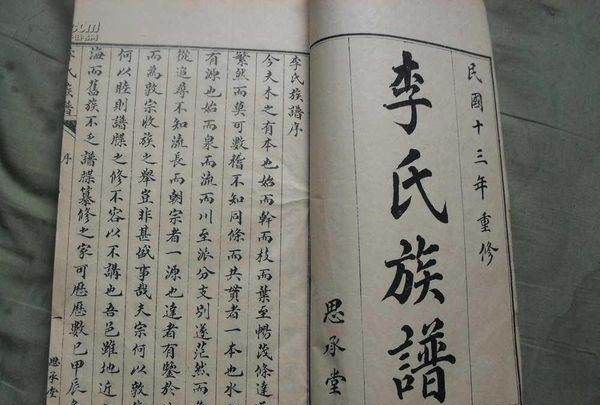 民國十三年重修
李氏族譜
思承堂
李氏族譜序
今夫木之有本也始而幹而枝而葉至暢茂條達
繁然而莫可數稽不知同條而共貫者一本也水
有源也始而泉而流而川至派分支別遂茫然而
從追尋不知流長而朝宗者一源也達者有鑒於
而為敦宗收族之舉豈非甚盛事哉夫宗何以敦
何以睦則譜牒之修不容以不講也吾邑雖地近
海而舊族不乏譜牒纂修之家可歷歷數已甲辰
氏族譜 序 一 思承堂